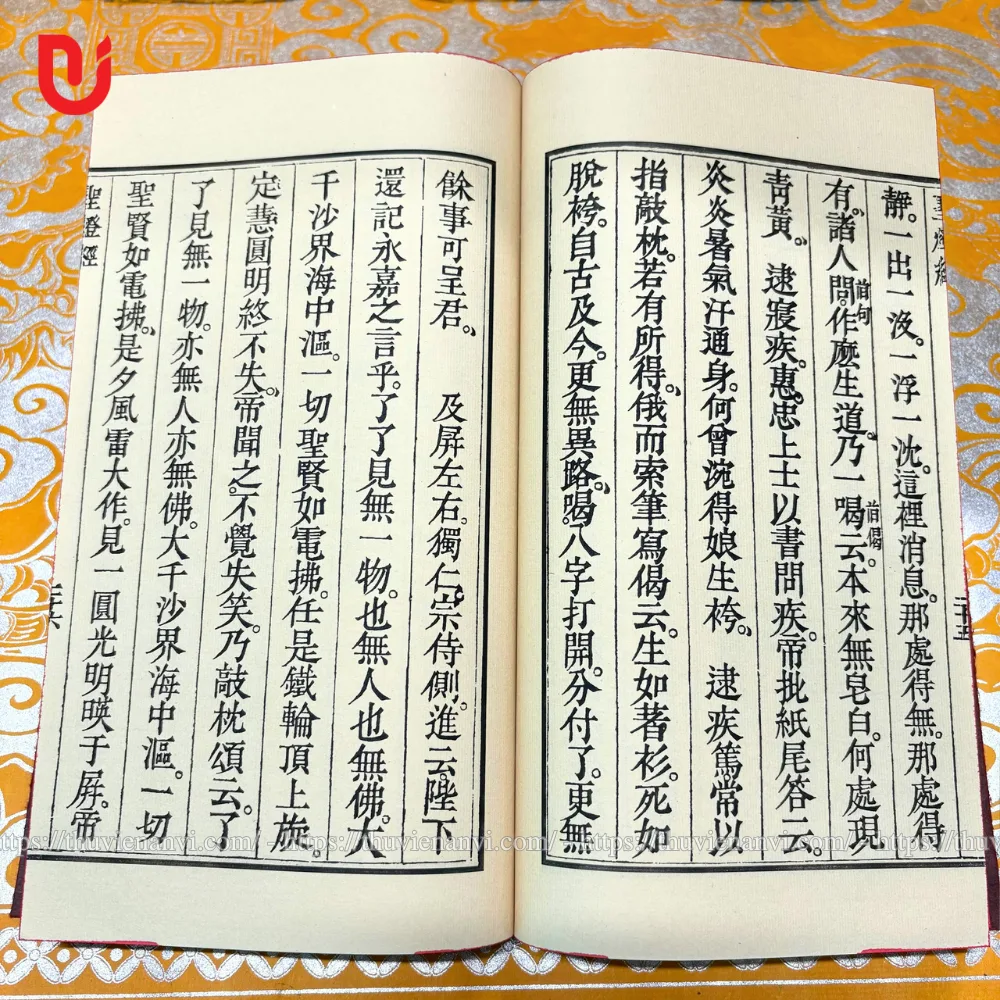 靜。一出一沒。一浮一沈。這裡消息。那處得無。那處得
有。諸人問。作麽生道。乃一喝云。本來無皂白。何處現
首句
首偈
青黃。逮寢疾。惠忠上士以書問疾。帝批紙尾答云。
炎炎暑氣汗通身。何曾浣得娘生袴。逮疾篤。常以
指敲枕。若有所得。俄而索筆寫偈云。生如著衫。死如
脫袴。自古及今。更無異路。喝。八字打開。分付了。更無
二十五
餘事可呈君。及屛左右。獨仁宗侍側。進云。陛下
還記永嘉之言乎。了了見無一物。也無人也無佛。大
千沙界海中漚。一切聖賢如電拂。任是鐵輪頂上旋。
定慧圓明終不失。帝聞之。不覺失笑。乃敲枕頌云。了
了見無一物。亦無人亦無佛。大千沙界海中漚。一切
聖賢如電拂。是夕風雷大作。見一圓光明暎于屛。帝
聖燈經
https://thuvienanvi.com/
https://thuvienanvi.com/
https://thuvienanvi.com/